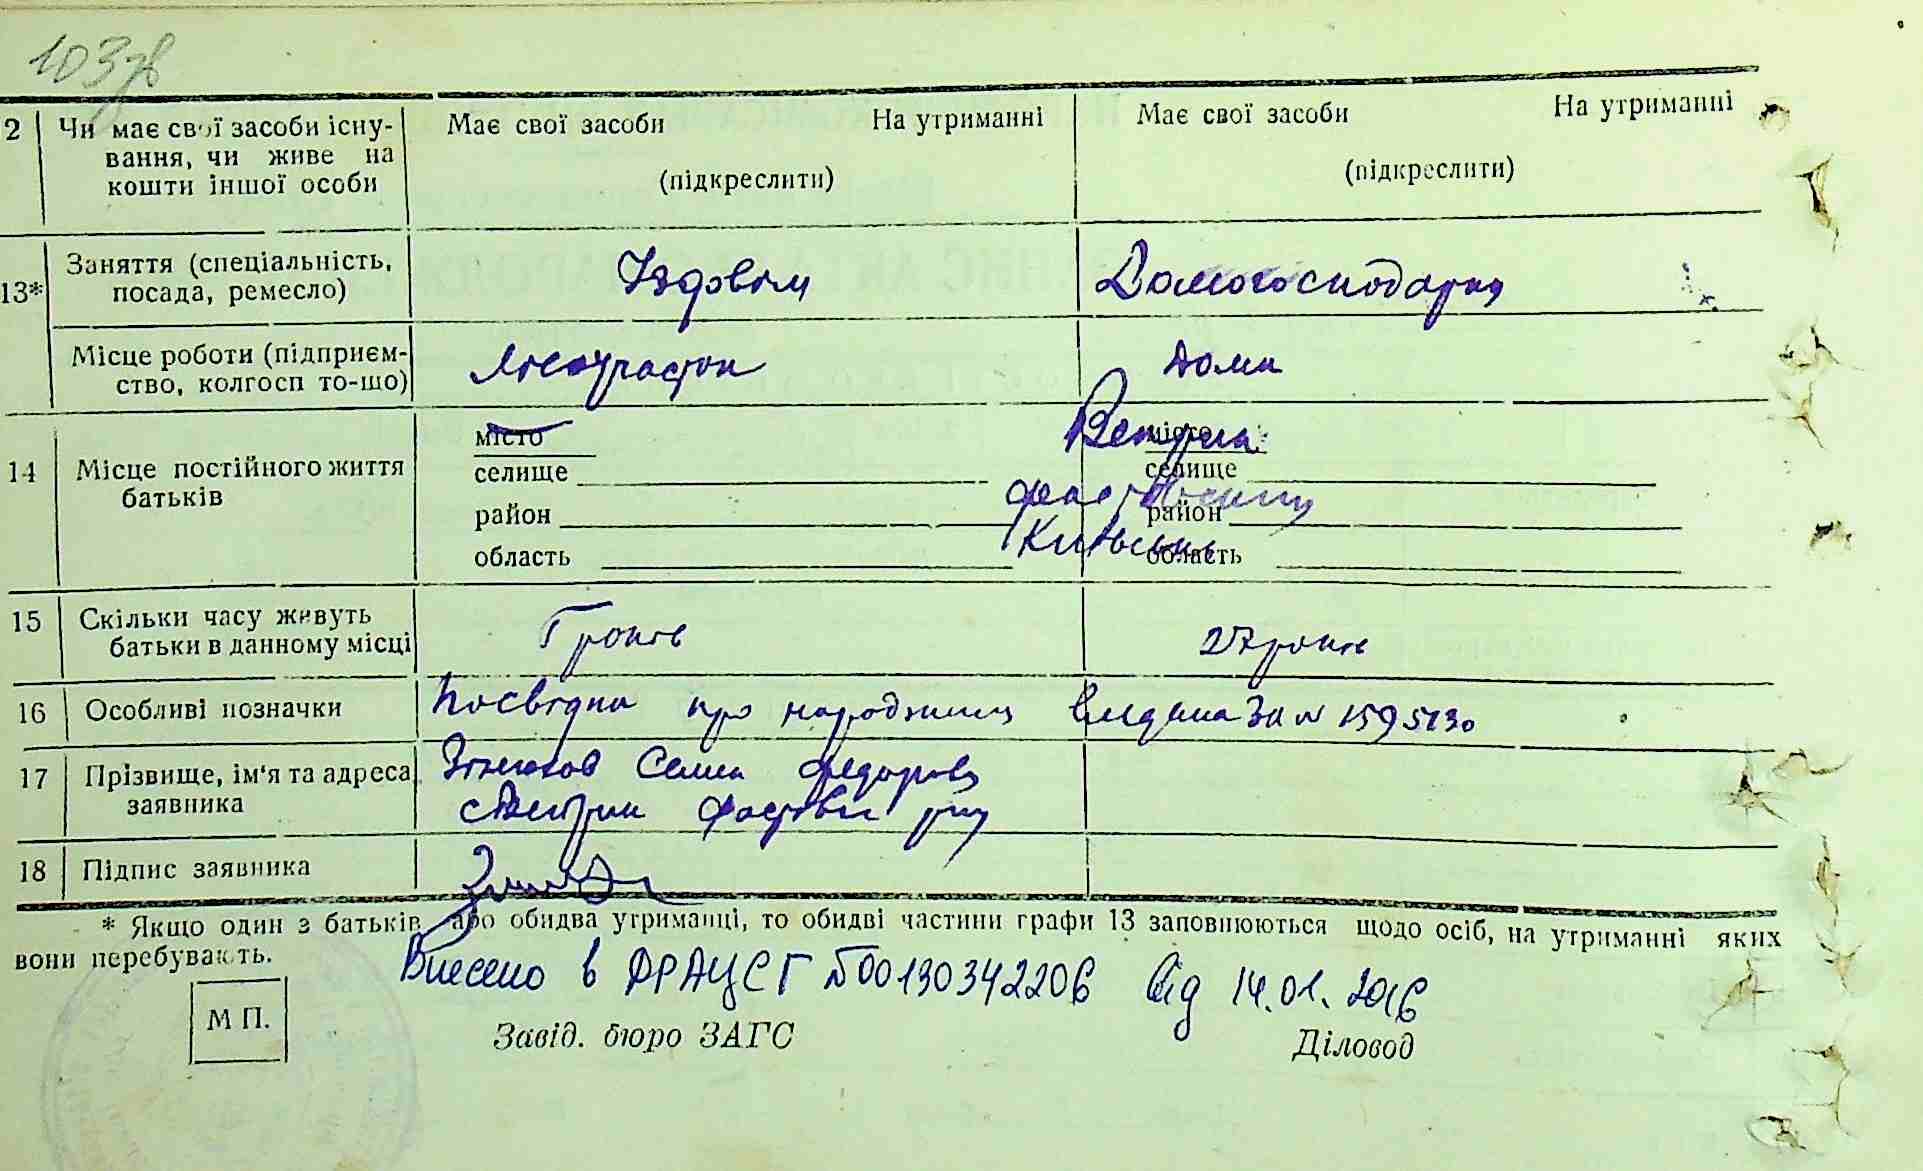 103зв
2 Чи має свої засоби існу- Має свої засоби На утриманні Має свої засоби На утриманні
вання, чи живе на
кошти іншої особи (підкреслити) (підкреслити)
13* Заняття (спеціальність, Їздовом Домогосподарка
посада, ремесло)
Місце роботи (підприєм- дома
ство, колгосп то-що)
14 Місце постійного життя
батьків
місто місто
селище селище
район район
Київська
область область
15 Скільки часу живуть років 27 років
батьки в данному місці
16 Особливі позначки Посвідка про народження видана за № 1595130
17 Прізвище, ім'я та адреса Семен Федоров
заявника Фастівськ р-ну
18 Підпис заявника
* Якщо один з батьків або обидва утриманці, то обидві частини графи 13 заповнюються щодо осіб, на утриманні яких
вони перебувають.
Внесено в ДРАЦСГ №00130342206 від 14.01.2016
М П.
Завід. бюро ЗАГС Діловод